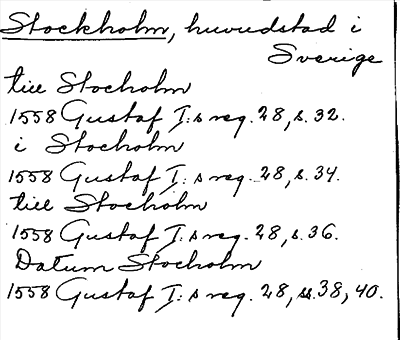 Stockholm, huvudstad i
Sverige
till Stocholm
1558 Gustaf I:s reg. 28, s. 32.
i Stocholm
1558 Gustaf I:s reg. 28, s. 34.
till Stocholm
1558 Gustaf I:s reg. 28, s. 36.
Datum Stocholm
1558 Gustaf I:s reg. 28, ss. 38, 40.